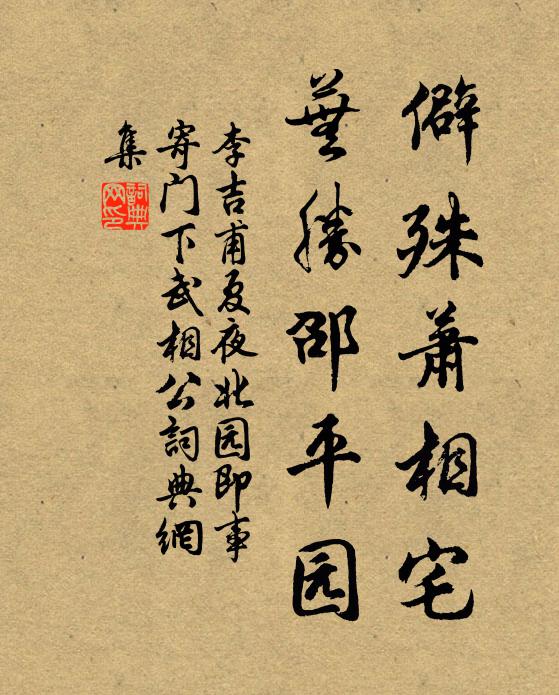 僻殊萧相宅
芜勝邵平园
李吉甫夏夜北园即事
寄门下武相公詞典網
集
詞典
网印